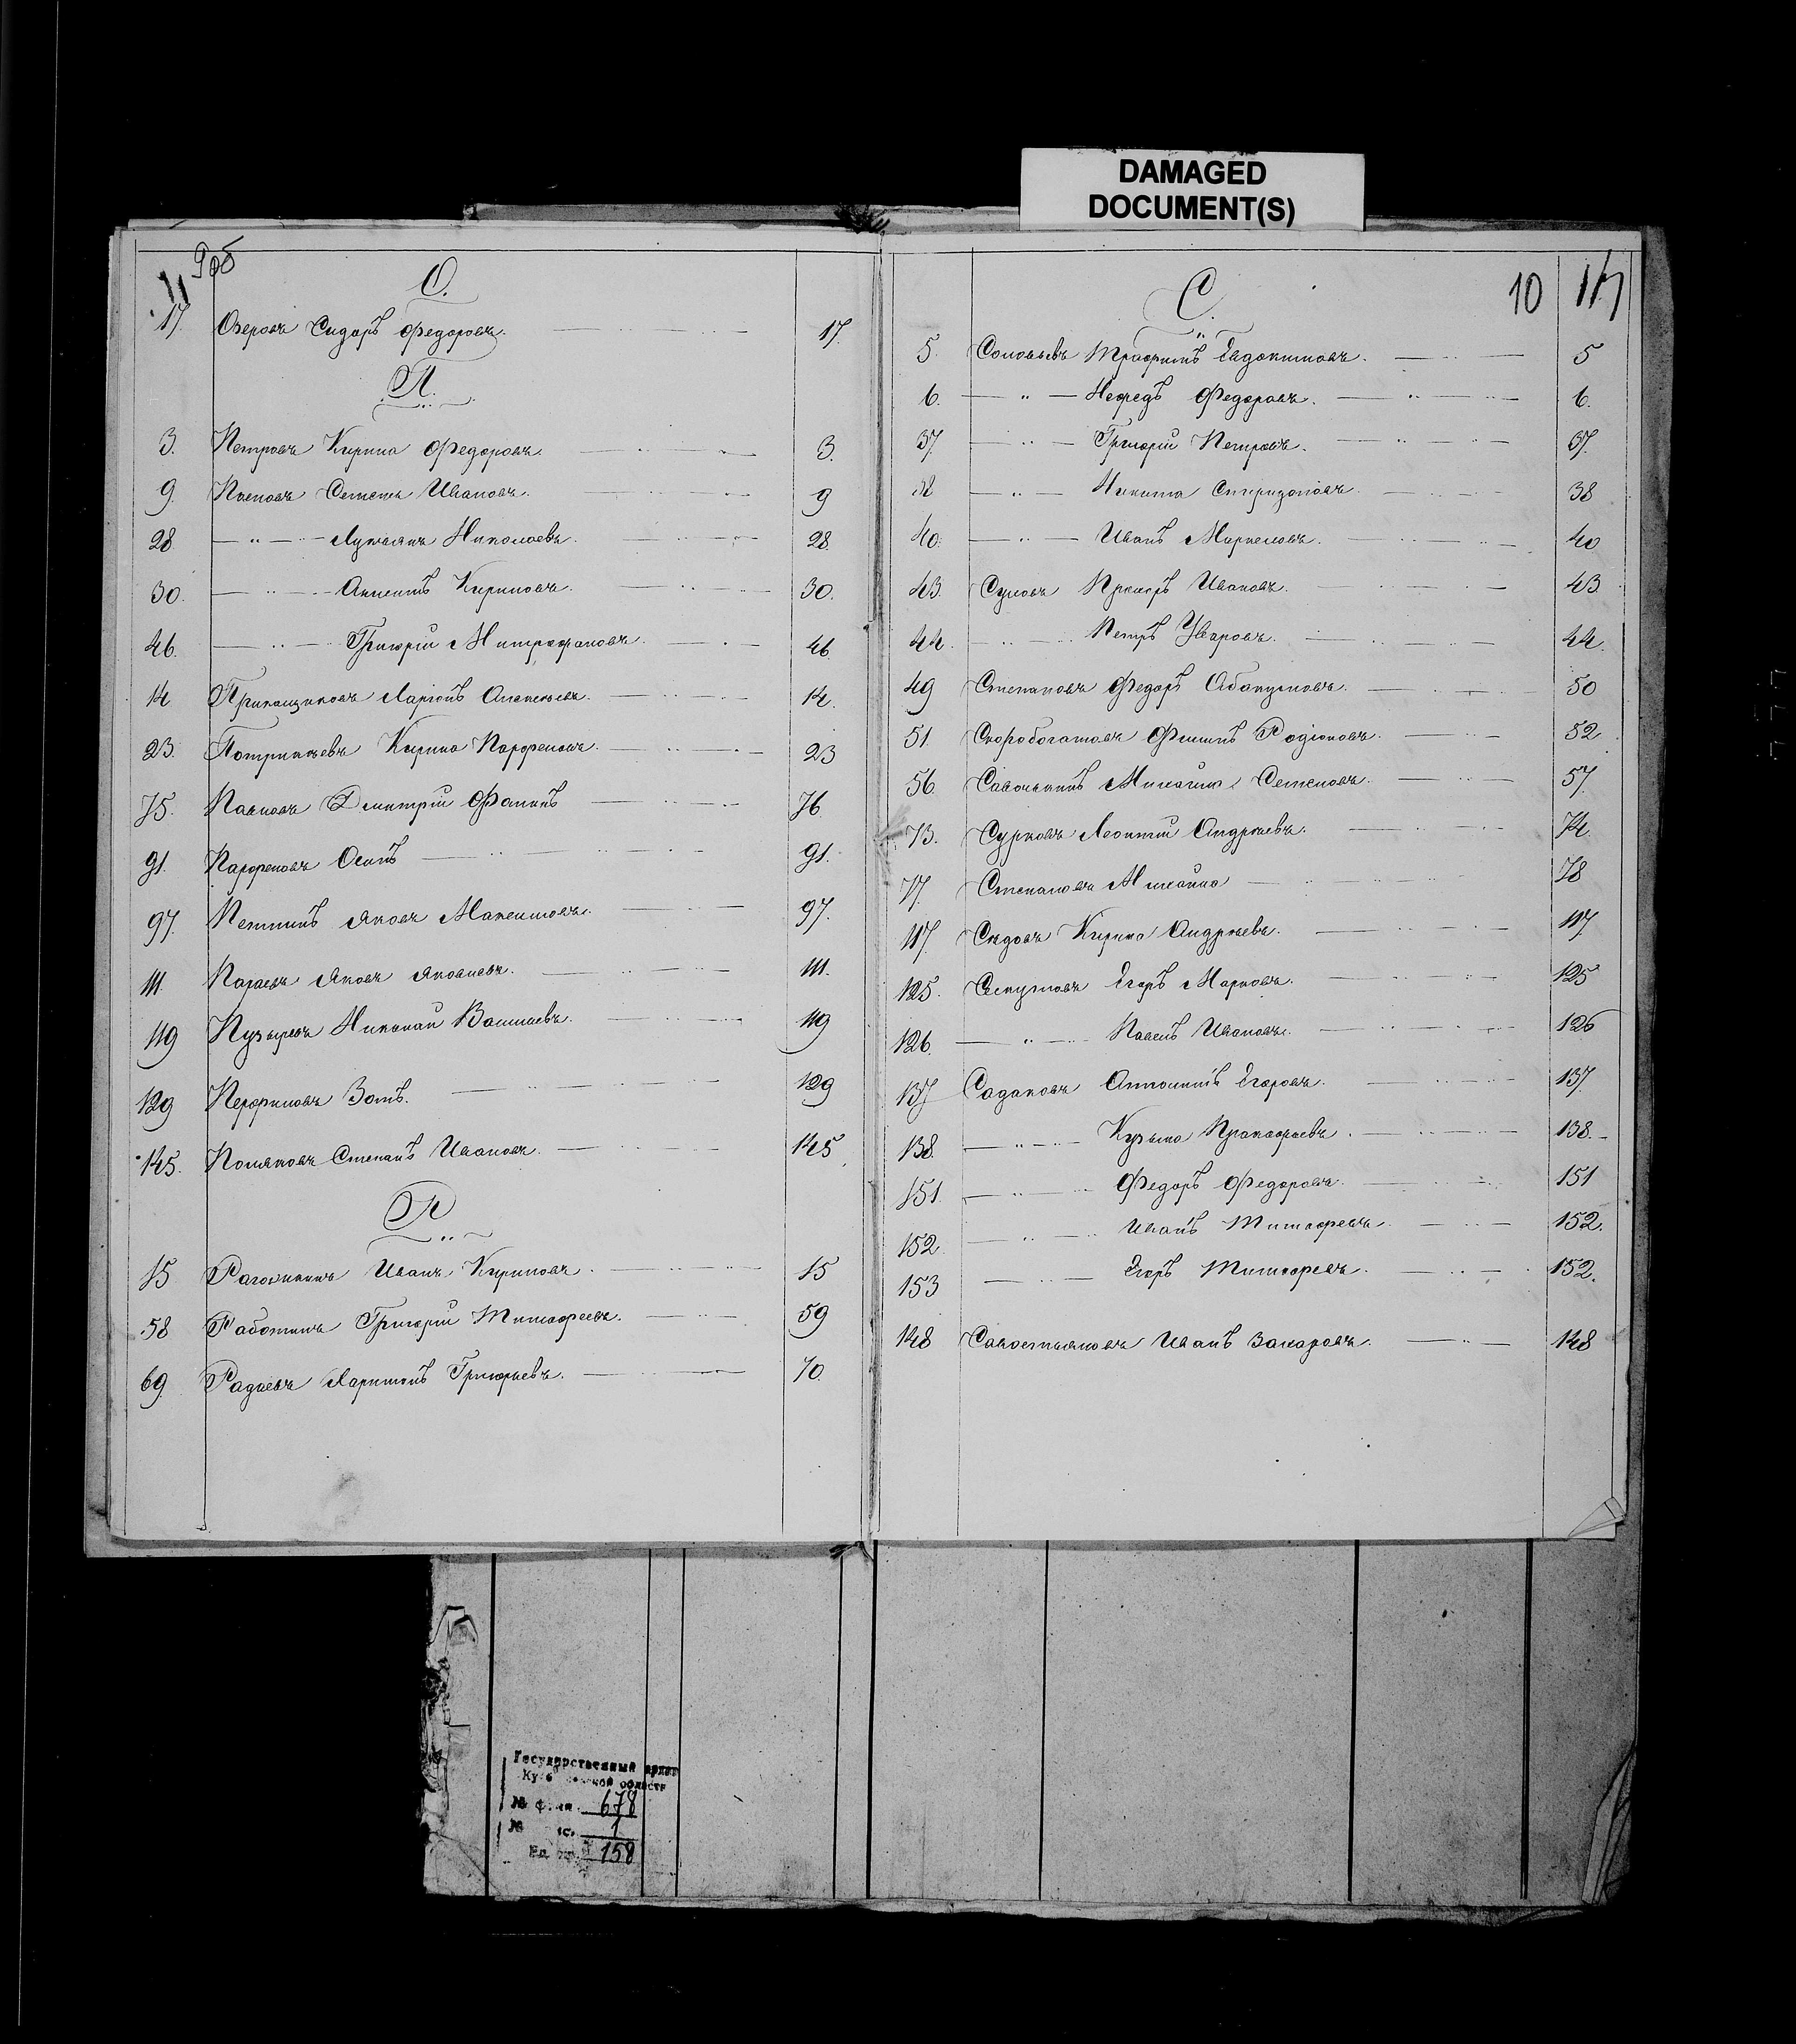 DAMAGED
DOCUMENT(S)
9об
11
О.
17. Озеровъ Сидоръ Федоровъ. 17.
П.
3. Петровъ Кирила Федоровъ. 3.
9. Павловъ Семенъ Ивановъ. 9
28 — " — Лукьянъ Николаевъ. 28
30. — " — Акинтъ Кириловъ. 30.
46. — " — Григорій Митрофановъ. 46
14 Прикащиковъ Ларіонъ Алексѣевъ. 14.
23. Патрикѣевъ Кирила Парфеновъ. 23
75. Павловъ Дмитрій Фалинъ 76
91. Парфеновъ Осипъ 91.
97. Петнинъ Яковъ Максимовъ. 97.
111. Параевъ Яковъ Яковлевъ. 111.
119 Пузыревъ Николай Васильевъ. 119
129 Перфиловъ Зотъ. 129
145. Поляковъ Степанъ Ивановъ. 145
Р
15 Рагожкинъ Иванъ Кириловъ. 15
58 Работинъ Григорій Тимофеевъ. 59
69. Радаевъ Харитонъ Григорьевъ. 70.
10 117
С.
5. Соловьевъ Трофимъ Евдокимовъ. 5
6. — " — Нефедъ Федоровъ. 6.
37. — " — Григорій Петровъ. 37.
38 — " — Никита Спиридоновъ. 38
40. — " — Иванъ Маркеловъ. 40
43. Суловъ Прохоръ Ивановъ. 43
44. — " — Петръ Уваровъ. 44.
49 Степановъ Федоръ Абакумовъ. 50
51. Скоробогатовъ Филипъ Родіоновъ. 52
56. Савочкинъ Михаилъ Семеновъ. 57.
73. Сурковъ Леонтій Андреевъ. 74.
77. Степановъ Михайла 78
117. Сѣдовъ Кирила Андреевъ. 117.
125. Секутовъ Егоръ Марковъ. 125
126. — " — Павелъ Ивановъ. 126
137 Садаковъ Антонинъ Егоровъ. 137.
138. — " — Кузьма Прокофьевъ. 138.
151. — " — Федоръ Федоровъ. 151
152 — " — Иванъ Тимофевъ. 152.
153 — " — Егоръ Тимофевъ. 152.
148 Савостьяновъ Иванъ Захаровъ. 148
Государственный архив
Куб ской области
№ фон. 678
№ ис. 1
Ед. хр. 158